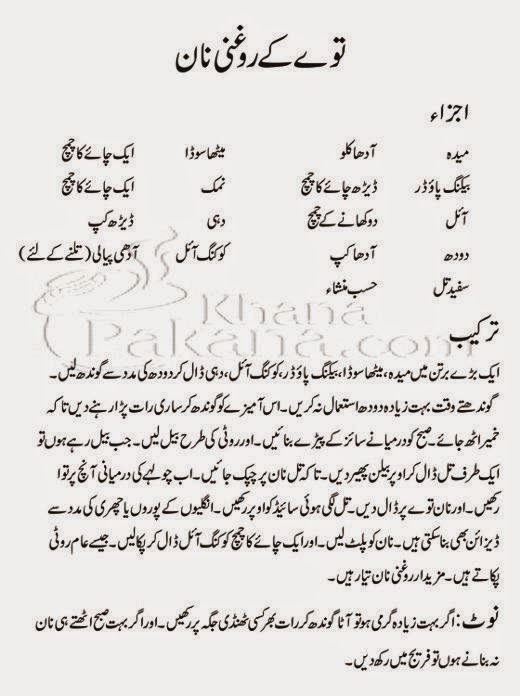 توے کے روغنی نان
اجزاء
میدہ آدھا کلو میٹھا سوڈا ایک چائے کا چمچ
بیکنگ پاؤڈر ڈیڑھ چائے کا چمچ نمک ایک چائے کا چمچ
آئل دو کھانے کے چمچ دہی ڈیڑھ کپ
دودھ آدھا کپ کوکنگ آئل آدھی پیالی (تلنے کے لئے)
سفید تل حسب منشاء
Khana
Pakana.com
ترکیب
ایک بڑے برتن میں میدہ، میٹھا سوڈا، بیکنگ پاؤڈر، کوکنگ آئل، دہی ڈال کر دودھ کی مدد سے گوندھ لیں۔
گوندھتے وقت بہت زیادہ دودھ استعمال نہ کریں۔ اس آمیزے کو گوندھ کر ساری رات پڑا رہنے دیں تا کہ
خمیر اٹھ جائے۔ صبح کو درمیانے سائز کے پیڑے بنائیں۔ اور روٹی کی طرح بیل لیں۔ جب بیل رہے ہوں تو
ایک طرف تل ڈال کر اوپر بیلن پھیر دیں۔ تا کہ تل نان پر چپک جائیں۔ اب چولہے کی درمیانی آنچ پر توا
رکھیں۔ اور نان توے پر ڈال دیں۔ تل لگی ہوئی سائیڈ کو اوپر رکھیں۔ انگلیوں کے پوروں یا چھری کی مدد سے
ڈیزائن بھی بنا سکتی ہیں۔ نان کو پلٹ لیں۔ اور ایک چائے کا چمچ کوکنگ آئل ڈال کر پکا لیں۔ جیسے عام روٹی
پکاتے ہیں۔ مزیدار روغنی نان تیار ہیں۔
نوٹ: اگر بہت زیادہ گرمی ہو تو آٹا گوندھ کر رات بھر کسی ٹھنڈی جگہ پر رکھیں۔ اور اگر بہت صبح اٹھتے ہی نان
نہ بنانے ہوں تو فریج میں رکھ دیں۔